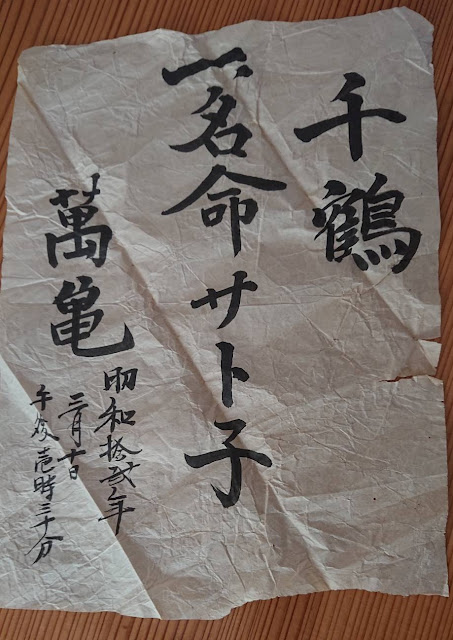 千鶴
一名命サト子
萬亀
昭和拾弐年
三月十日
午後壱時三十分